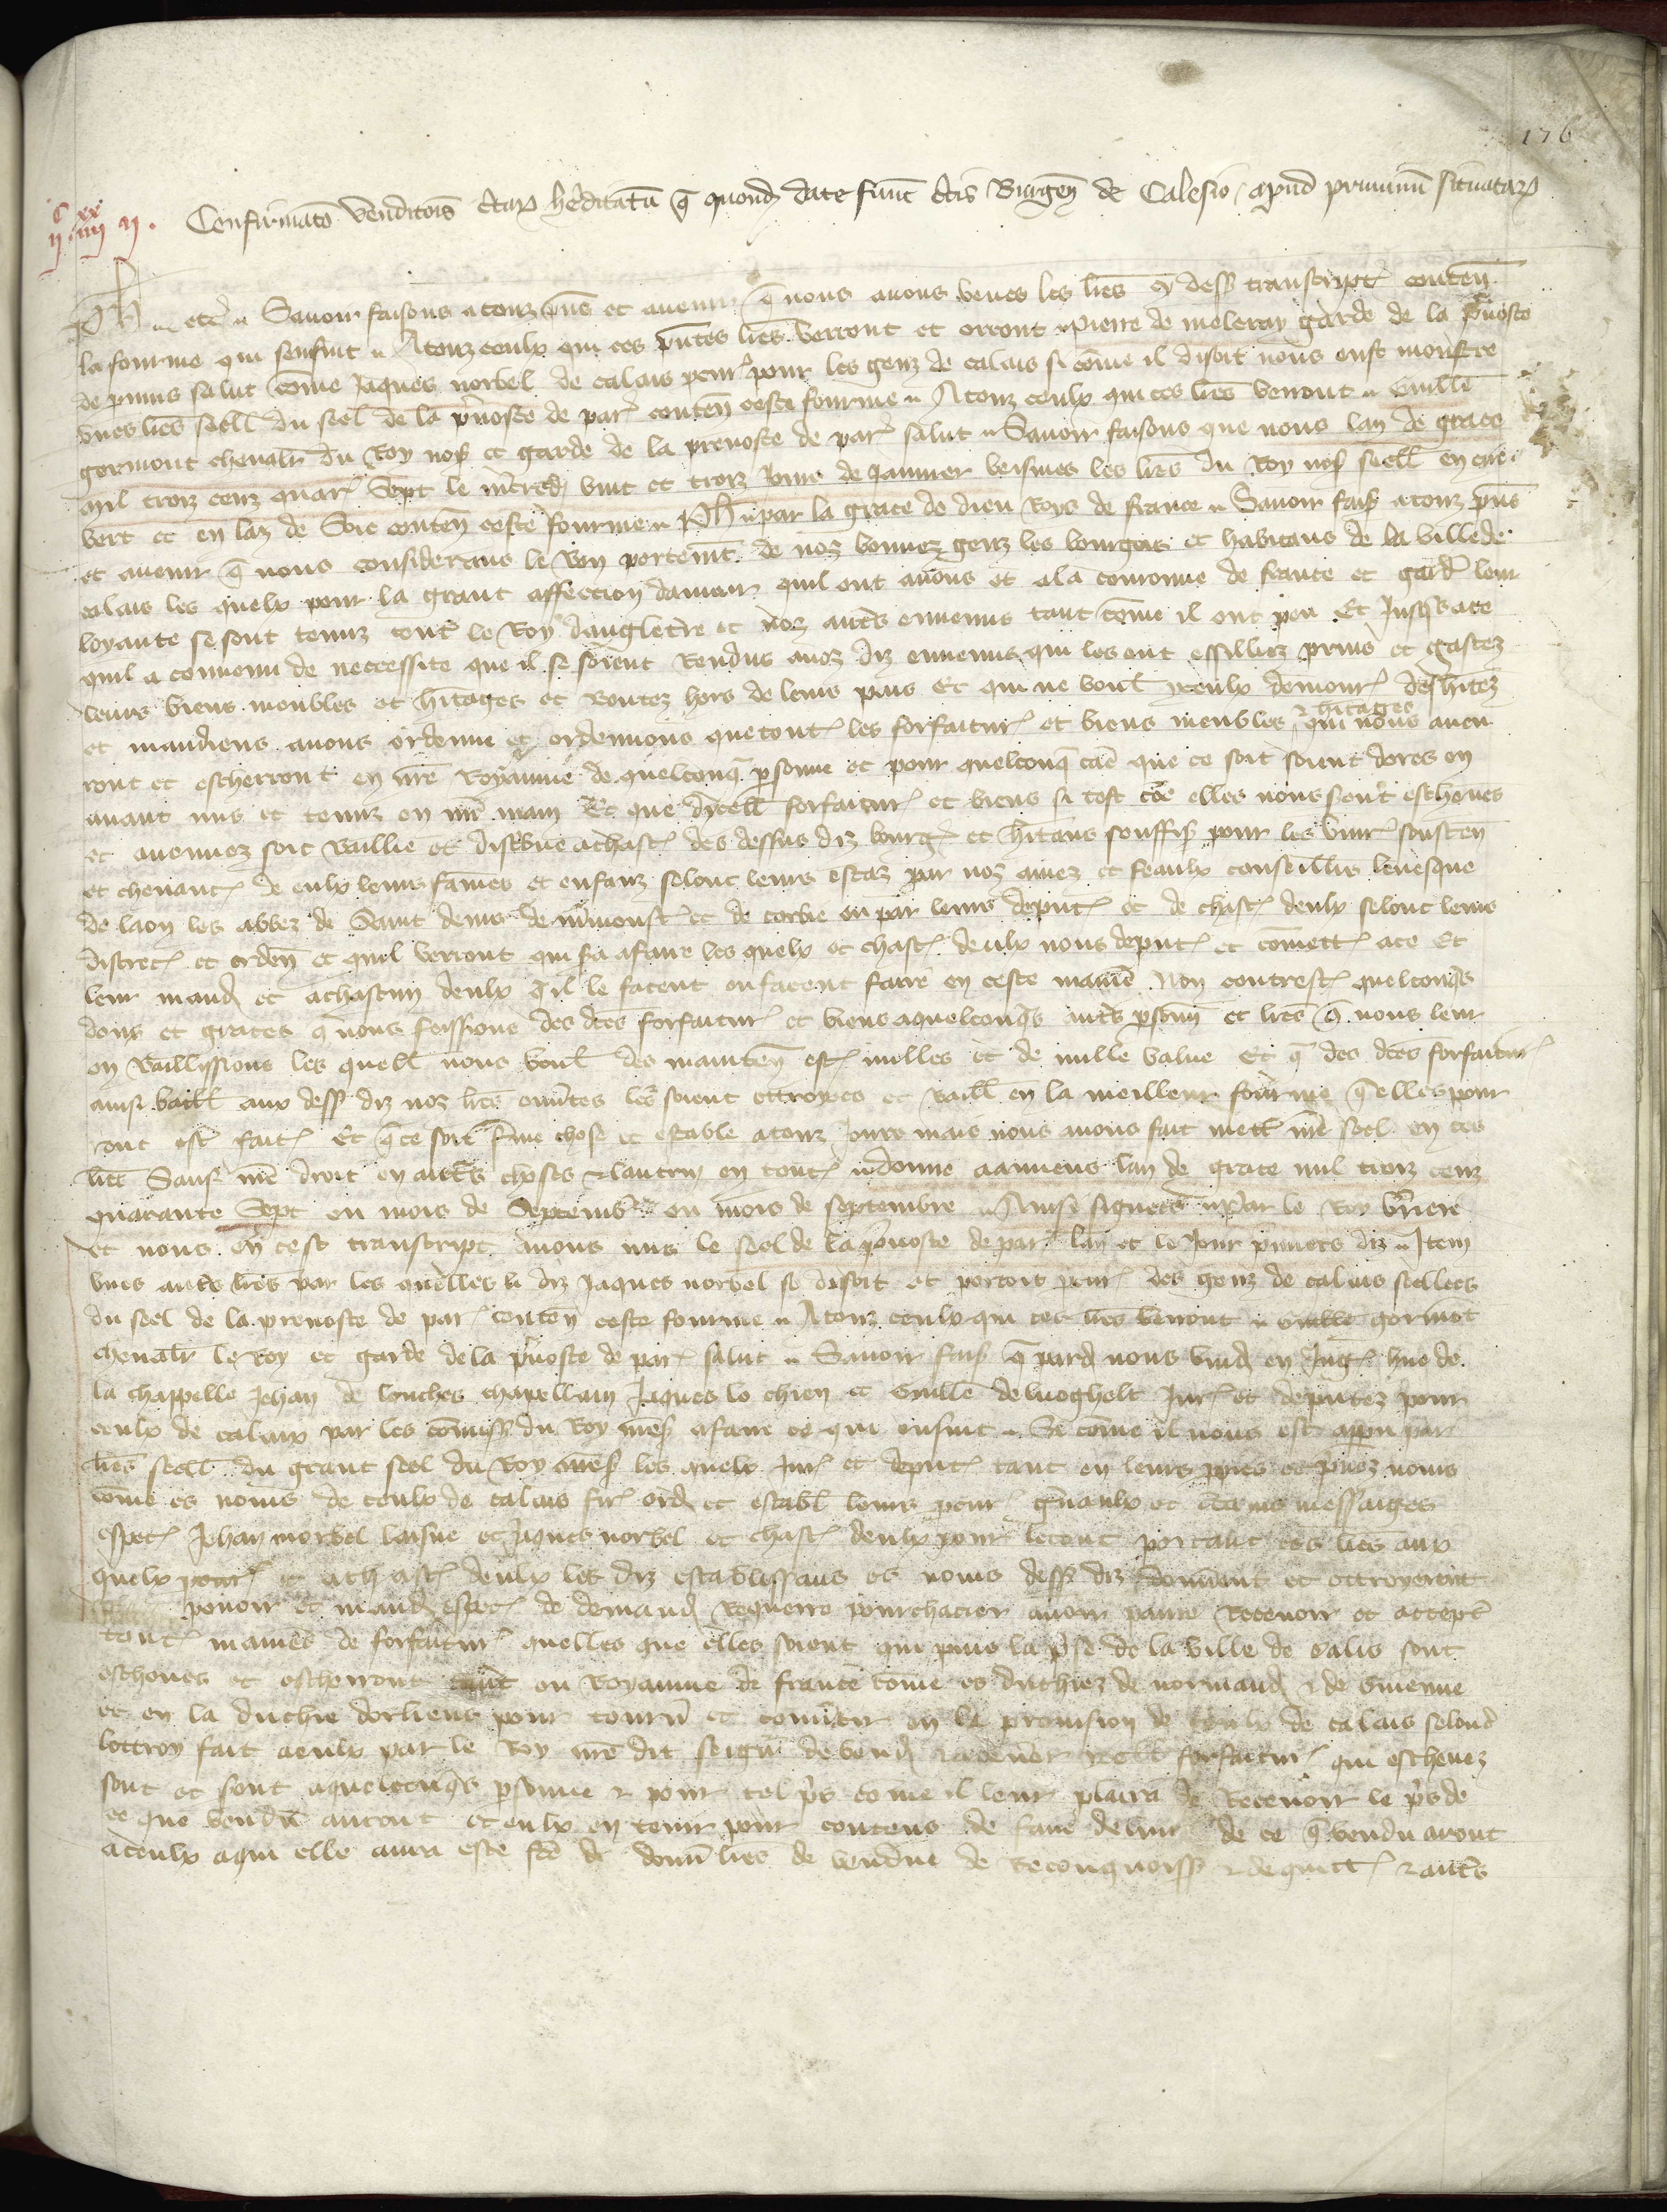 176
Confirmato venditois ctarp heditatu q quond date fuint ctis Burgen de Calesio apud pruuinu situatarp
c xx
ii iiii ii .
Ph etc Savoir faisons a touz pns et avenir q nous avons veues les lres cy dess transcript conten
la fourme qui sensuit Atouz ceulx qui ces pntes lres verront et orront Pierre de meleray garde de la pvoste
de prouins salut come Jaques norbel de calais pcur pour les genz de calais si come il disoit nous eust monstre
unes lres seell du seel de la pvoste de par conten ceste fourme Atouz ceulx qui ces lres verront Guille
gormont chevalr du Roy nos et garde de la prevoste de par salut Savoir faisons que nous lan de grace
mil troiz cenz quar sept le mcred vint et troiz jours de Janvier veismes les lres du Roy nos seell en cire
vert et en laz de soie conten ceste fourme Ph par la grace de dieu Roys de france Savoir fais atouz pns
et avenir q nous considerans le bon portemt de noz bonnez genz les bourgois et habitans de la ville de
calais les quelx pour la grant affeccion damour quil ont anous et ala couronne de france et gard leur
loyaute se sont tenuz cont le Roy dangletre et noz auts ennemis tant come il ont peu Et jusqs ace
quil a convenu de neccessite que il se soient Rendus anoz diz ennemis qui les ont essilliez prins et gastez
leurs biens meubles et hitages et Boutez hors de leurs pais Et qui ne voul yceulx demour deshitez
et mandiens avons ordenne et ordennons que tout les forfaitur et biens meubles & hitages qui nous aven
ront et escherront en nre Royaume de quelconq psonne et pour quelconq cas que ce soit soient dores en
avant mis et tenuz en nre main Et que dicell forfaitur et biens si tost coe elles nous sont escheues
et avenuez soit baillie et distbue achast des dessus diz bourg et hitans souffis pour les vivr sousten
et chevanc de eulx leurs fames et enfanz selonc leurs estaz par noz amez et feaulx conseillrs levesque
de laon les abbez de Saint denis de mmoust et de corbie ou par leurs deput et de chast deulx selonc leurs
discrec et orden et quil verront qui sa afaire les quelx et chast deulx nous deput et comett ace Et
leur mand et achascun deulx q il le facent ou facent faire en ceste maniere Non contrest quelconqs
dons et graces q nous feissions des dces forfaitur et biens aquelconqs auts psonn et lres q nous leur
en baillissions les quell nous voul des mainten est nulles et de nulle value Et q des dces forfaitur
ainsi baill aux dess diz noz lres ouvtes les soient ottroyees et baill en la meilleur fourme q elles pour
ront est fait Et q ce soit ferme chose et estable atouz Jours mais nous avons fait mett nre seel en ces
lres Sauf nre droit en auts choses & lautruy en tout donne aamiens lan de grace mil troiz cenz
quarante Sept ou mois de Septemb ou mois de septembre Ainsi signees par le Roy Briere
et nous en cest transcript avons mis le seel de la pvoste de par lan et le Jour pmiers diz Item
unes auts lres par les quelles li diz Jaques norbel se disoit et portoit pcur des genz de calais seellees
du seel de la prevoste de par conten ceste fourme Atouz ceulx qui ces lres verront Guille gormot
chevalr le Roy et garde de la pvoste de par salut Savoir fais q pard nous vind en Jug hue de
la chappelle Jehan de louches chapellain Jaques lo chien et Guille de luoghelt Jur et deputez pour
ceulx de calaix par les comiss du Roy nres afaire ce qui ensuit Si come il nous est apparu par
lres seell du grant seel du Roy nres les quelx Jur et deput tant en leurs pures et pvez noms
come es noms de ceulx de calais fir ord et establ leurs pcur gnaulx et ctains messaiges
espec Jehan norbel laisne et Jaques norbel et chast deulx pour le tout portant ces lres aux
quelx pcur et ach ast deulx les diz establissans es noms dess diz donnent et ottroyerent
povoir et mand espec de demand Requerre pourchacier avoir panre Recevoir et accept
tout manies de forfaitur quelles que elles soient qui puis la pse de la ville de calis sont
escheues et escherront tant ou Royaume de france come es duchiez de normand & de Guienne
et en la duchie dorliens pour tourn et convtir en la provision de ceulx de calais selond
lottroy fait aeulx par le Roy nre dit seign de vend & adener ycell forfaitur qui escheuez
sont et sont aquelconqs psonne & pour tel pris come il leur plaira de Recevoir le pris de
ce que vendu auront et eulx en tenir pour contens de faire delivr de ce q vendu aront
aceulx aqui elle aura este fce de donn lres de vendue de Recongnoiss & de quitt & auts